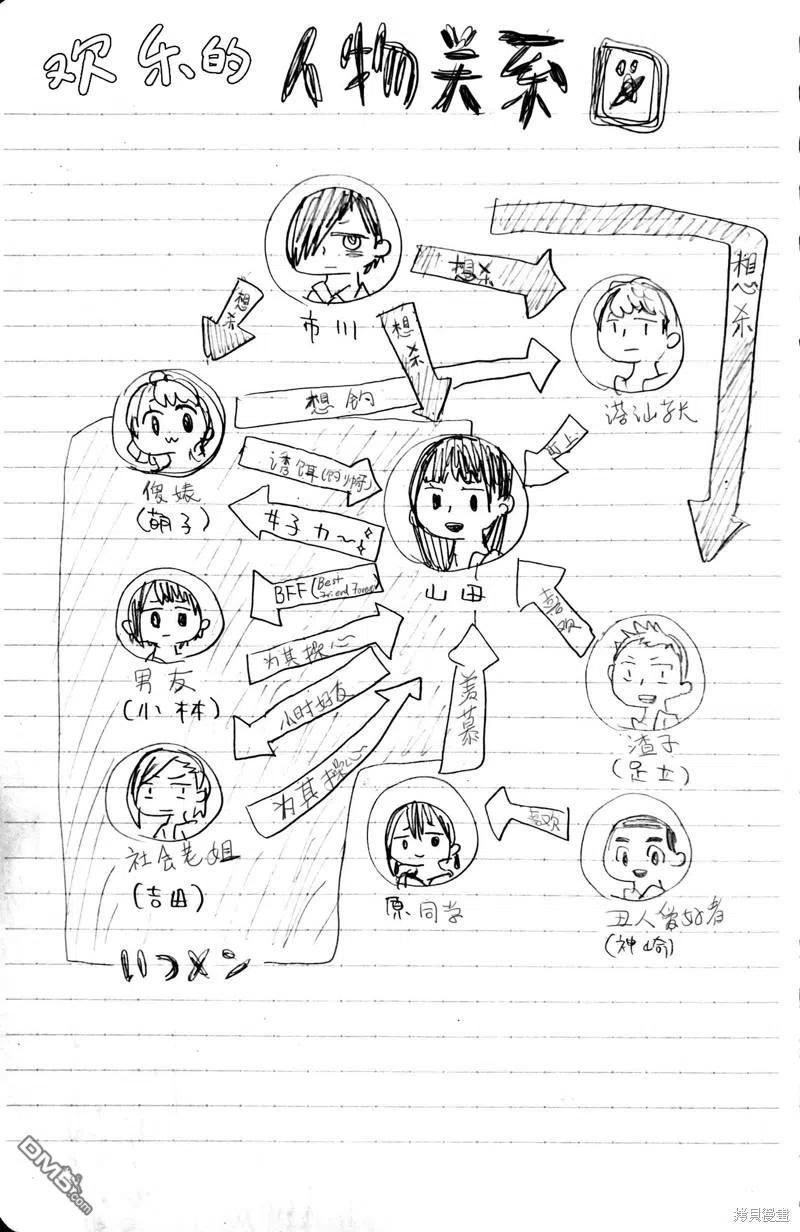 欢乐的人物关系图
想杀
想杀
想杀
想杀
市川
搭讪学长
想钓
盯上
诱饵(钓帅哥)
女子力～
傻婊
(萌子)
山田
BFF(Best Friend Forever)
喜欢
为其操心
男友
(小林)
小时好友
羡慕
渣子
(足立)
为其操心
喜欢
社会老姐
(吉田)
原同学
丑人爱好者
(神崎)
いつメン
DM5.com
拷貝漫畫